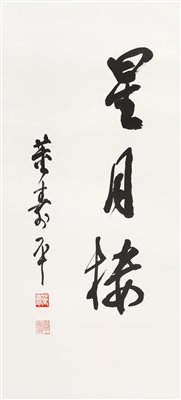 星月楼
董寿平